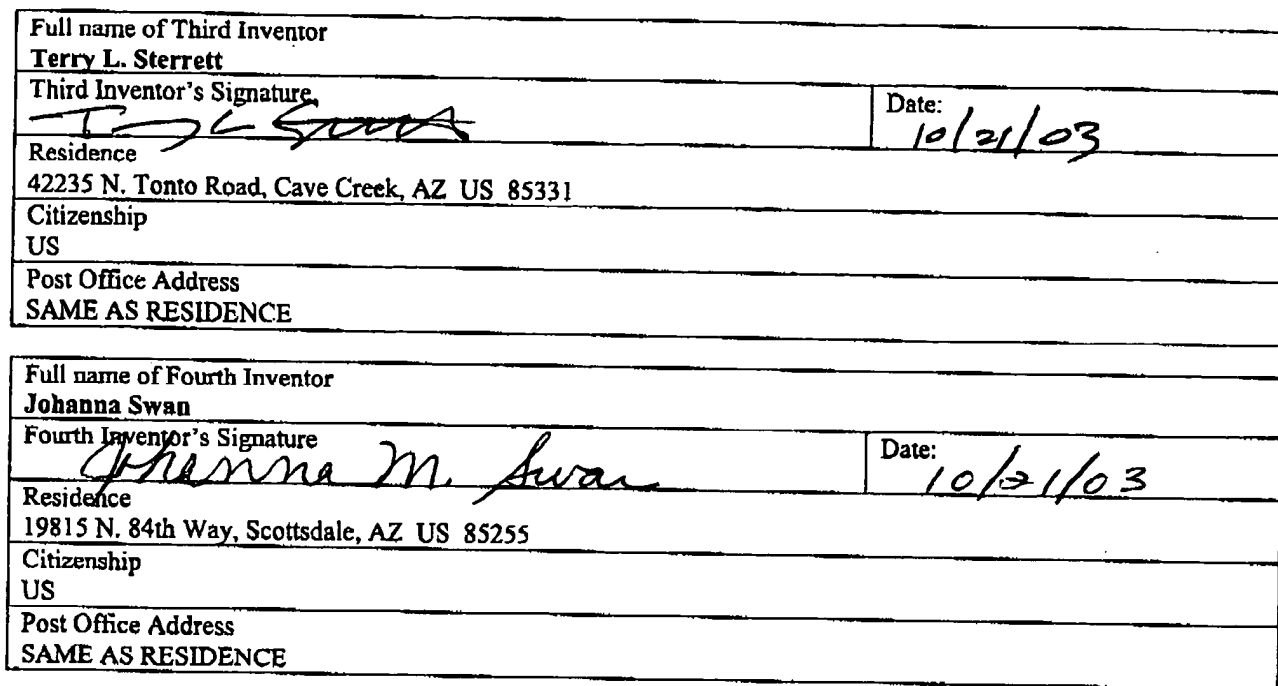 Full name of Third Inventor
Terry L. Sterrett
Third Inventor's Signature
Date:
10/21/03
Residence
42235 N. Tonto Road, Cave Creek, AZ US 85331
Citizenship
US
Post Office Address
SAME AS RESIDENCE
Full name of Fourth Inventor
Johanna Swan
Fourth Inventor's Signature
Johanna M. Swan
Date:
10/21/03
Residence
19815 N. 84th Way, Scottsdale, AZ US 85255
Citizenship
US
Post Office Address
SAME AS RESIDENCE